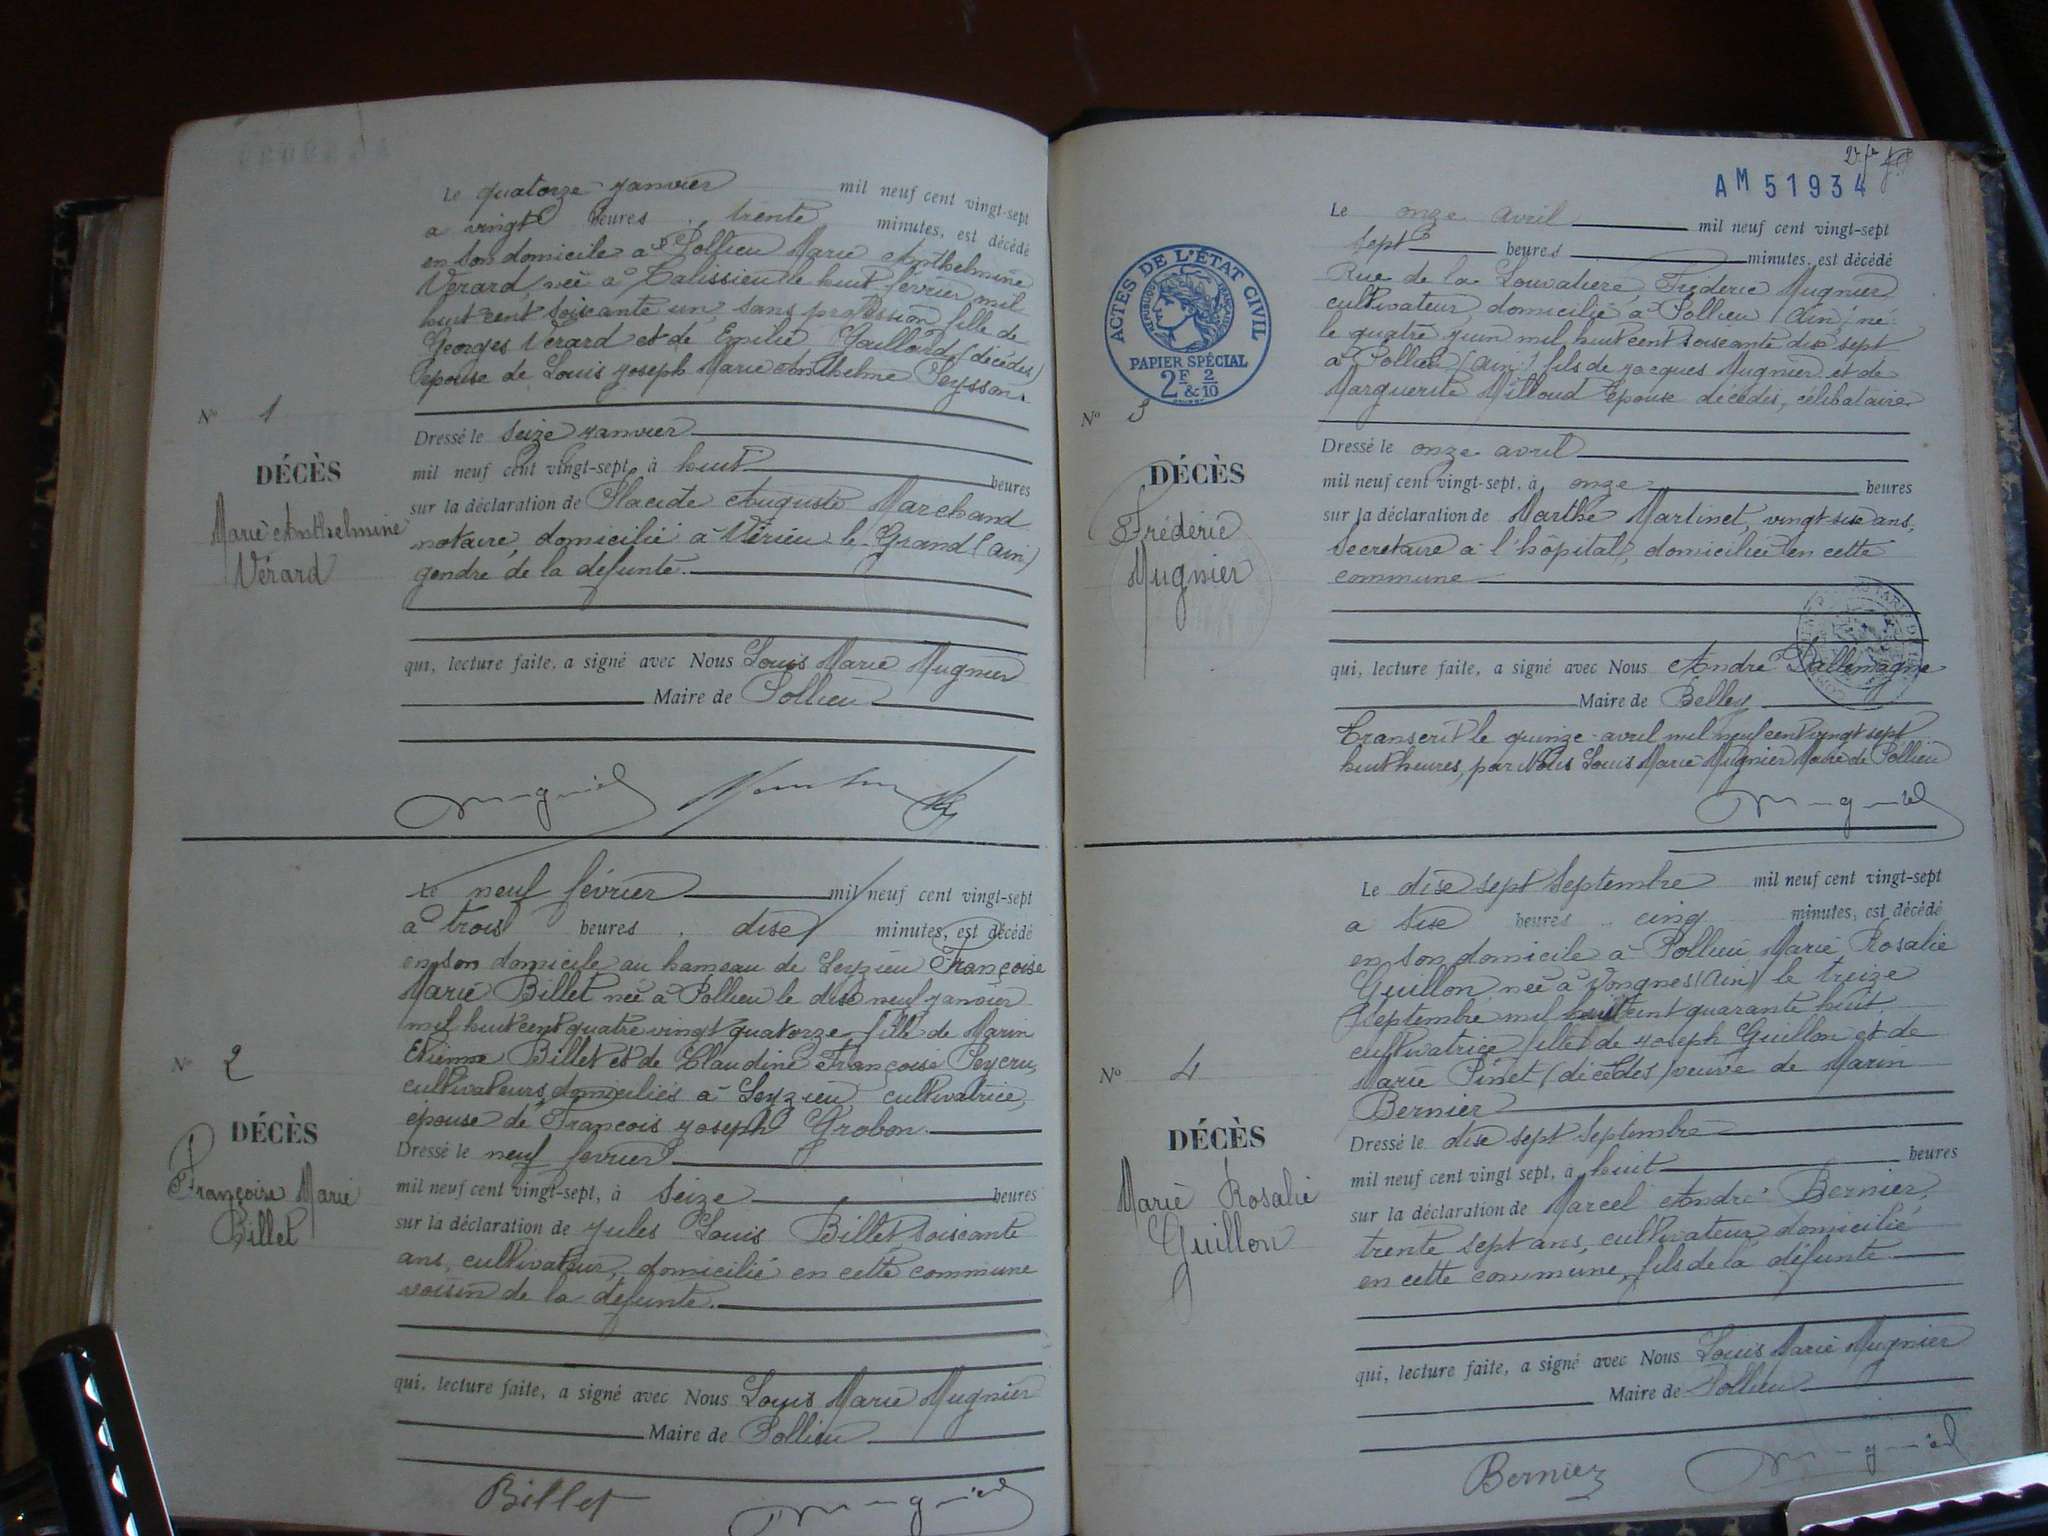 Le quatorze janvier mil neuf cent vingt-sept
à vingt heures, trente minutes, est décédé
en son domicile à Pollieu Marie Anthelmine
Vérard, née à Talissieu le huit février mil
huit cent soixante un, sans profession, fille de
Georges Vérard et de Emilie Gaillard (décédés)
épouse de Louis Joseph Marie Anthelme Peysson.
N° 1
DÉCÈS
Marie Anthelmine
Vérard
Dressé le seize janvier
mil neuf cent vingt-sept, à huit heures
sur la déclaration de Placide Auguste Marchand
notaire, domicilié à Virieu-le-Grand (ain)
gendre de la défunte.
qui, lecture faite, a signé avec Nous Louis Marie Mugnier
Maire de Pollieu
Mugnier
Le neuf février mil neuf cent vingt-sept
à trois heures, dix minutes, est décédé
en son domicile au hameau de Leyzieu Françoise
Marie Billet née à Pollieu le dix neuf janvier
mil huit cent quatre vingt quatorze, fille de Marin
Etienne Billet et de Claudine Françoise Peycru,
cultivateurs domiciliés à Leyzieu, cultivatrice,
épouse de François Joseph Grobon.
N° 2
DÉCÈS
Françoise Marie
Billet
Dressé le neuf février
mil neuf cent vingt-sept, à seize heures
sur la déclaration de Jules Louis Billet soixante
ans, cultivateur, domicilié en cette commune
voisin de la défunte.
qui, lecture faite, a signé avec Nous Louis Marie Mugnier
Maire de Pollieu
Billet Mugnier
AM 51934
ACTES DE L'ÉTAT CIVIL
RÉPUBLIQUE FRANÇAISE
PAPIER SPÉCIAL
2F & 2/10
Le onze avril mil neuf cent vingt-sept
sept heures minutes, est décédé
Rue de la Louvatière, Fréderic Mugnier,
cultivateur, domicilié à Pollieu (Ain) né
le quatre juin mil huit cent soixante dix sept
à Pollieu (Ain), fils de Jacques Mugnier et de
Marguerite Milloud Epoux décédés, célibataire.
N° 3
DÉCÈS
Fréderic
Mugnier
Dressé le onze avril
mil neuf cent vingt-sept, à onze heures
sur la déclaration de Marthe Martinet, vingt-six ans,
secrétaire à l'hôpital, domiciliée en cette
commune
qui, lecture faite, a signé avec Nous André Dallemagne
Maire de Belley
Transcrit le quinze avril mil neuf cent vingt sept
huit heures, par Nous Louis Marie Mugnier Maire de Pollieu
Mugnier
Le dix sept septembre mil neuf cent vingt-sept
à six heures cinq minutes, est décédé
en son domicile à Pollieu Marie Rosalie
Guillon, née à Vongnes (Ain) le treize
septembre mil huit cent quarante huit,
cultivatrice, fille de Joseph Guillon et de
Marie Pinet (décédés) veuve de Marin
Bernier
N° 4
DÉCÈS
Marie Rosalie
Guillon
Dressé le dix sept septembre
mil neuf cent vingt sept, à huit heures
sur la déclaration de Marcel André Bernier,
trente sept ans, cultivateur domicilié
en cette commune, fils de la défunte
qui, lecture faite, a signé avec Nous Louis Marie Mugnier
Maire de Pollieu
Bernier Mugnier